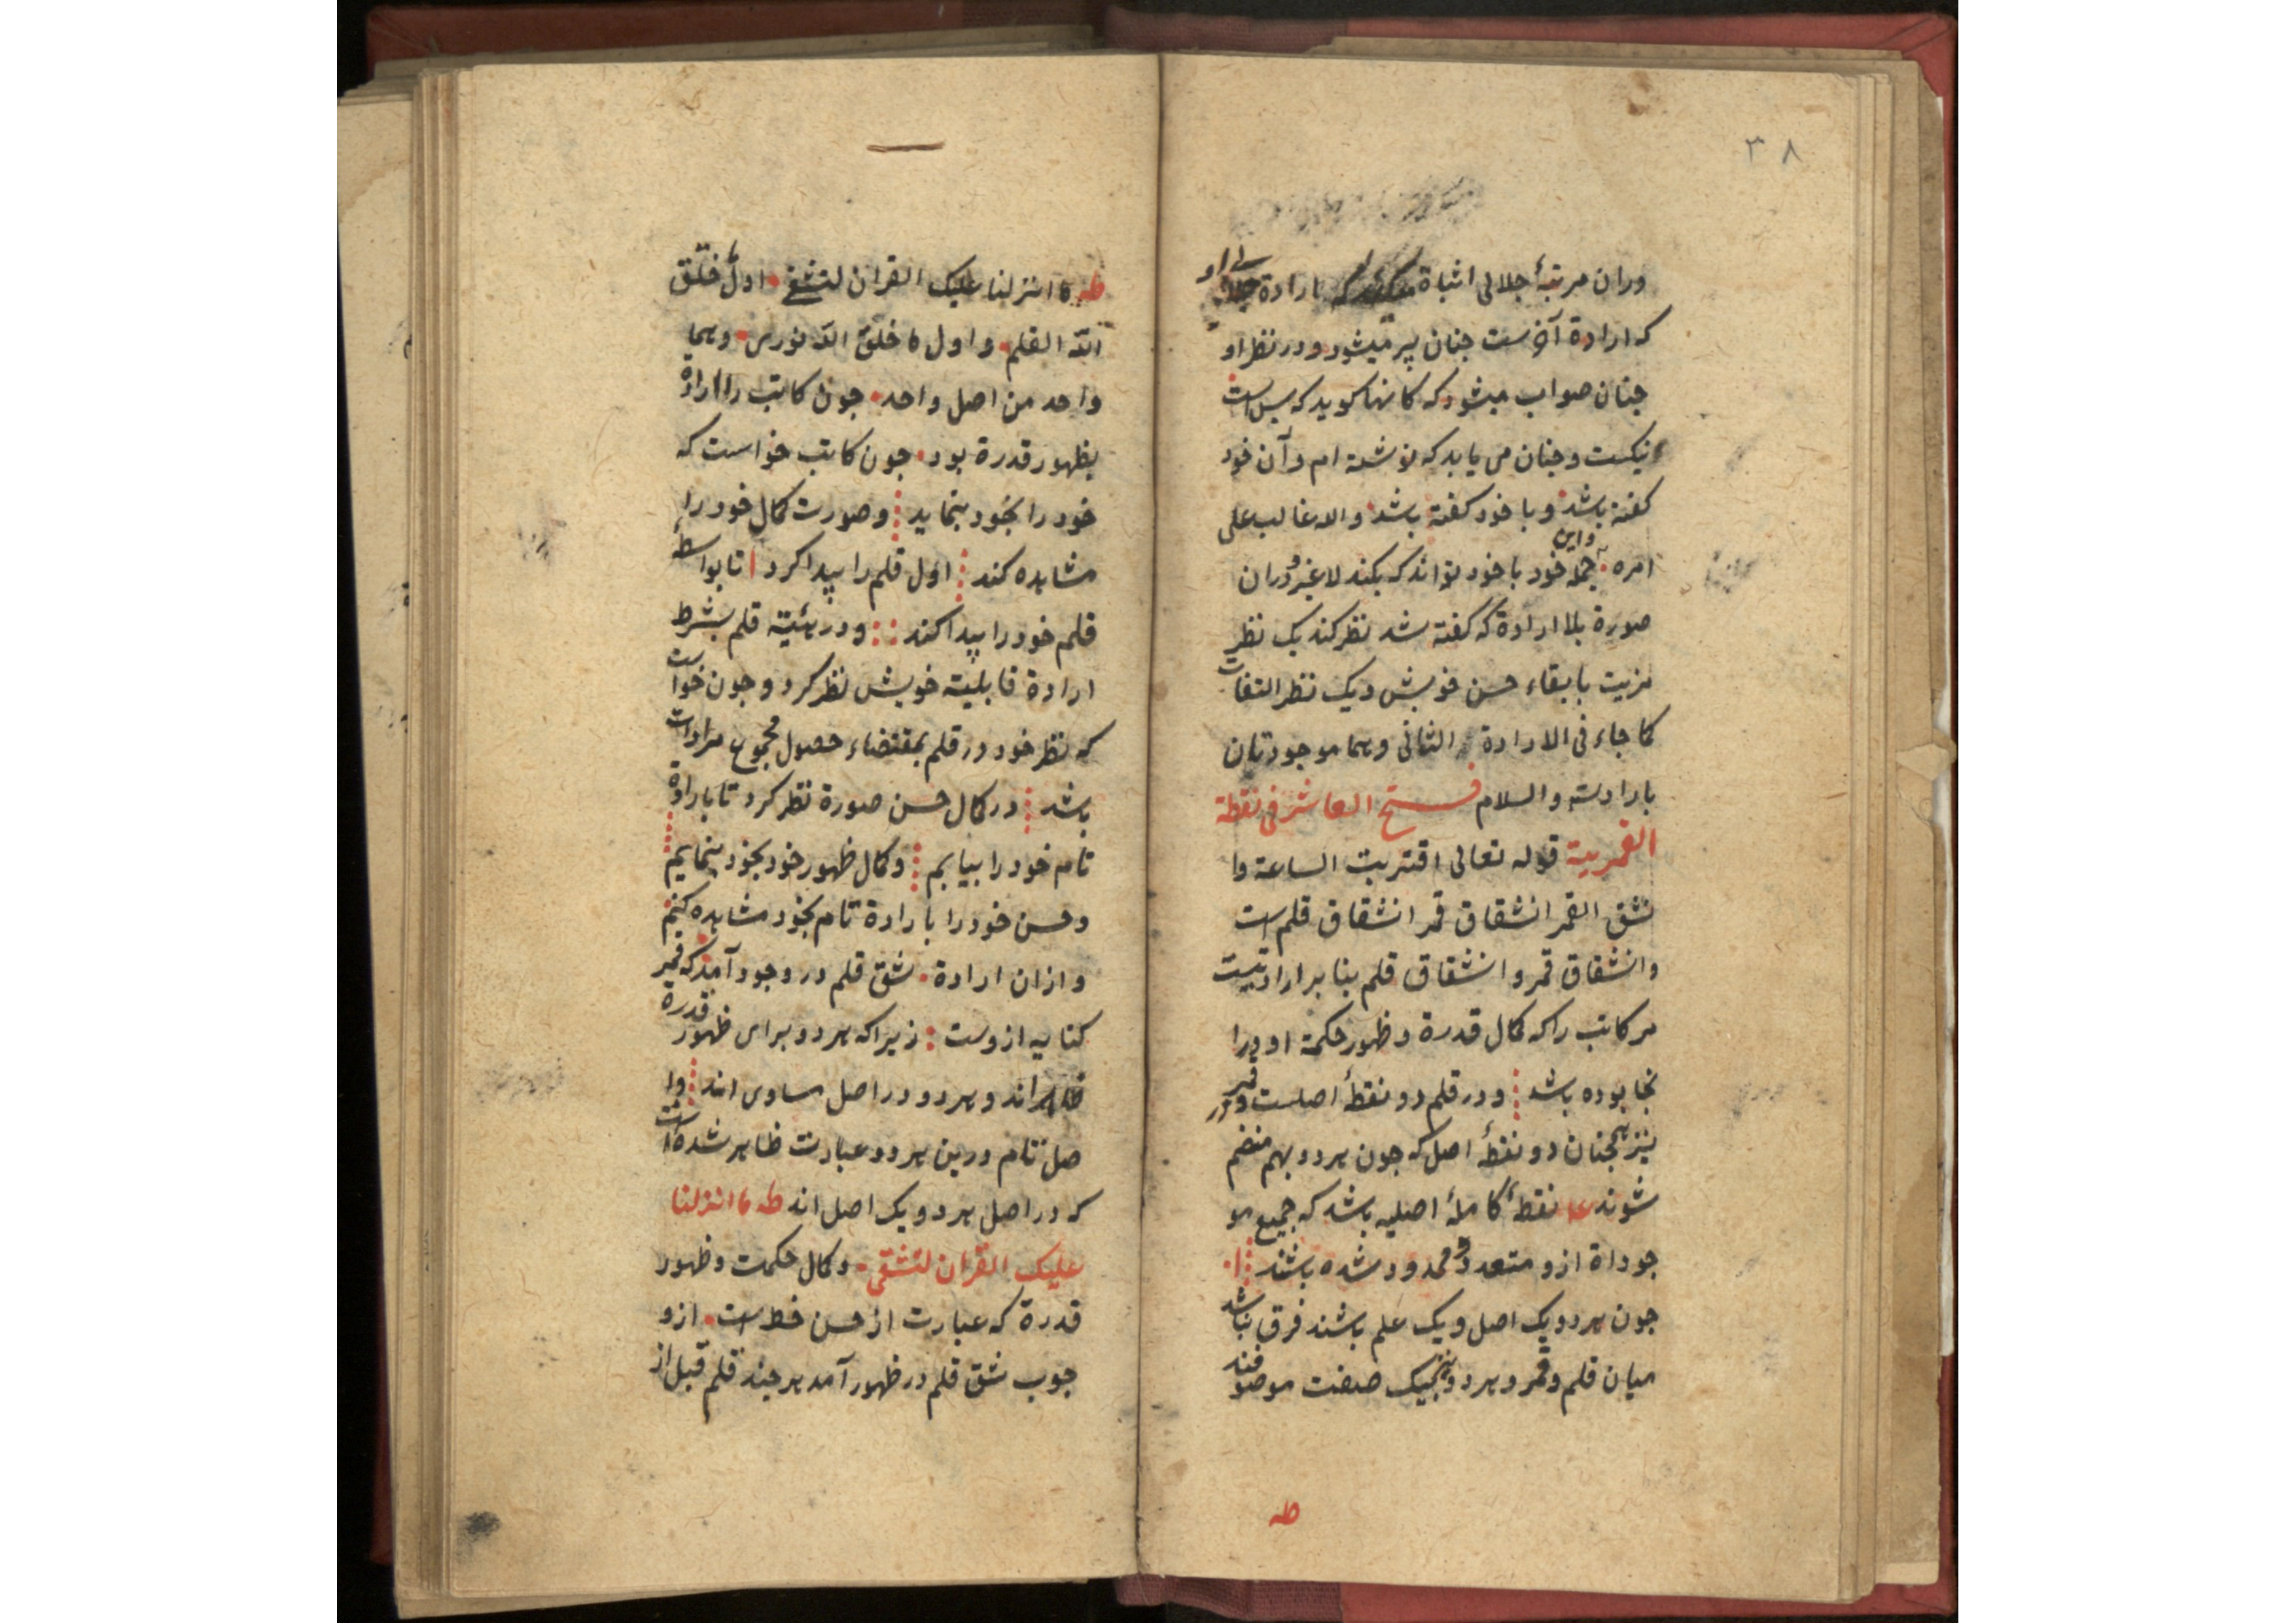 ۳۸
وران مرتبهٔ جلالی اثباة که بارادة
که ارادة آخرست جنان پر میشود ودر نظر او
جنان صواب میشود که کانها کوید که بس است
نیکست وجنان می یابد که نوشته ام وآن خود
کفته باشد وبا خود کفته باشد والله غالب علی
امره واین جمله خود با خود تواند که بکند لا غیر ودران
صورة بلا ارادة که کفته شد نظر کند یک نظر
مزیت بابقاء حسن خویش ویک نظر التفات
کما جاء فی الارادة الثانی وهما موجودتان
بارادته والسلام فتح العاشر فی نقطة
القمریة قوله تعالی اقتربت الساعة وا
نشق القمر انشقاق قمر انشقاق قلم است
وانشقاق قمر وانشقاق قلم بنا بر ارادتیست
مر کاتب را که کمال قدرة وظهور حکمة او ورا
نجا بوده باشد ودر قلم دو نقطهٔ اصلست ودر قمر
نیز همجنان دو نقطهٔ اصل که جون هر دو بهم منضم
شوند نقطهٔ کاملهٔ اصلیه باشد که جمیع مو
جوداة ازو متعدد ومحدود شده باشند
جون هر دو یک اصل ویک علم باشند فرق نباشد
میان قلم وقمر وهر دو بیک صفت موصوفند
طه
طه ما انزلنا علیک القران لتشقی اول ما خلق
الله القلم واول ما خلق الله نوری وهما
واحد من اصل واحد جون کاتب را ارادة
بظهور قدرة بود جون کاتب خواست که
خود را بخود بنماید وصورت کمال خود را
مشاهده کند اول قلم را پیدا کرد تا بواسطهٔ
قلم خود را پیدا کند ودر هئیة قلم بشرط
ارادة قابلیة خویش نظر کرد وجون خواست
که نظر خود در قلم بمقتضاء حصول مجموع مرادات
باشد در کمال حسن صورة نظر کرد تا بارادة
تام خود را بیابم وکمال ظهور خود بخود بنمایم
وحسن خود را بارادة تام بخود مشاهده کنم
وازان ارادة شق قلم در وجود آمد که قمر
کنایه ازوست زیرا که هر دو برای ظهور قدرة
ظاهراند وهر دو در اصل مساوی اند وا
صل تام درین هر دو عبارت ظاهر شده است
که در اصل هر دو یک اصل اند طه ما انزلنا
علیک القران لتشقی وکمال حکمت وظهور
قدرة که عبارت از حسن خط است ازو
جوب شق قلم در ظهور آمد هر جند قلم قبل از